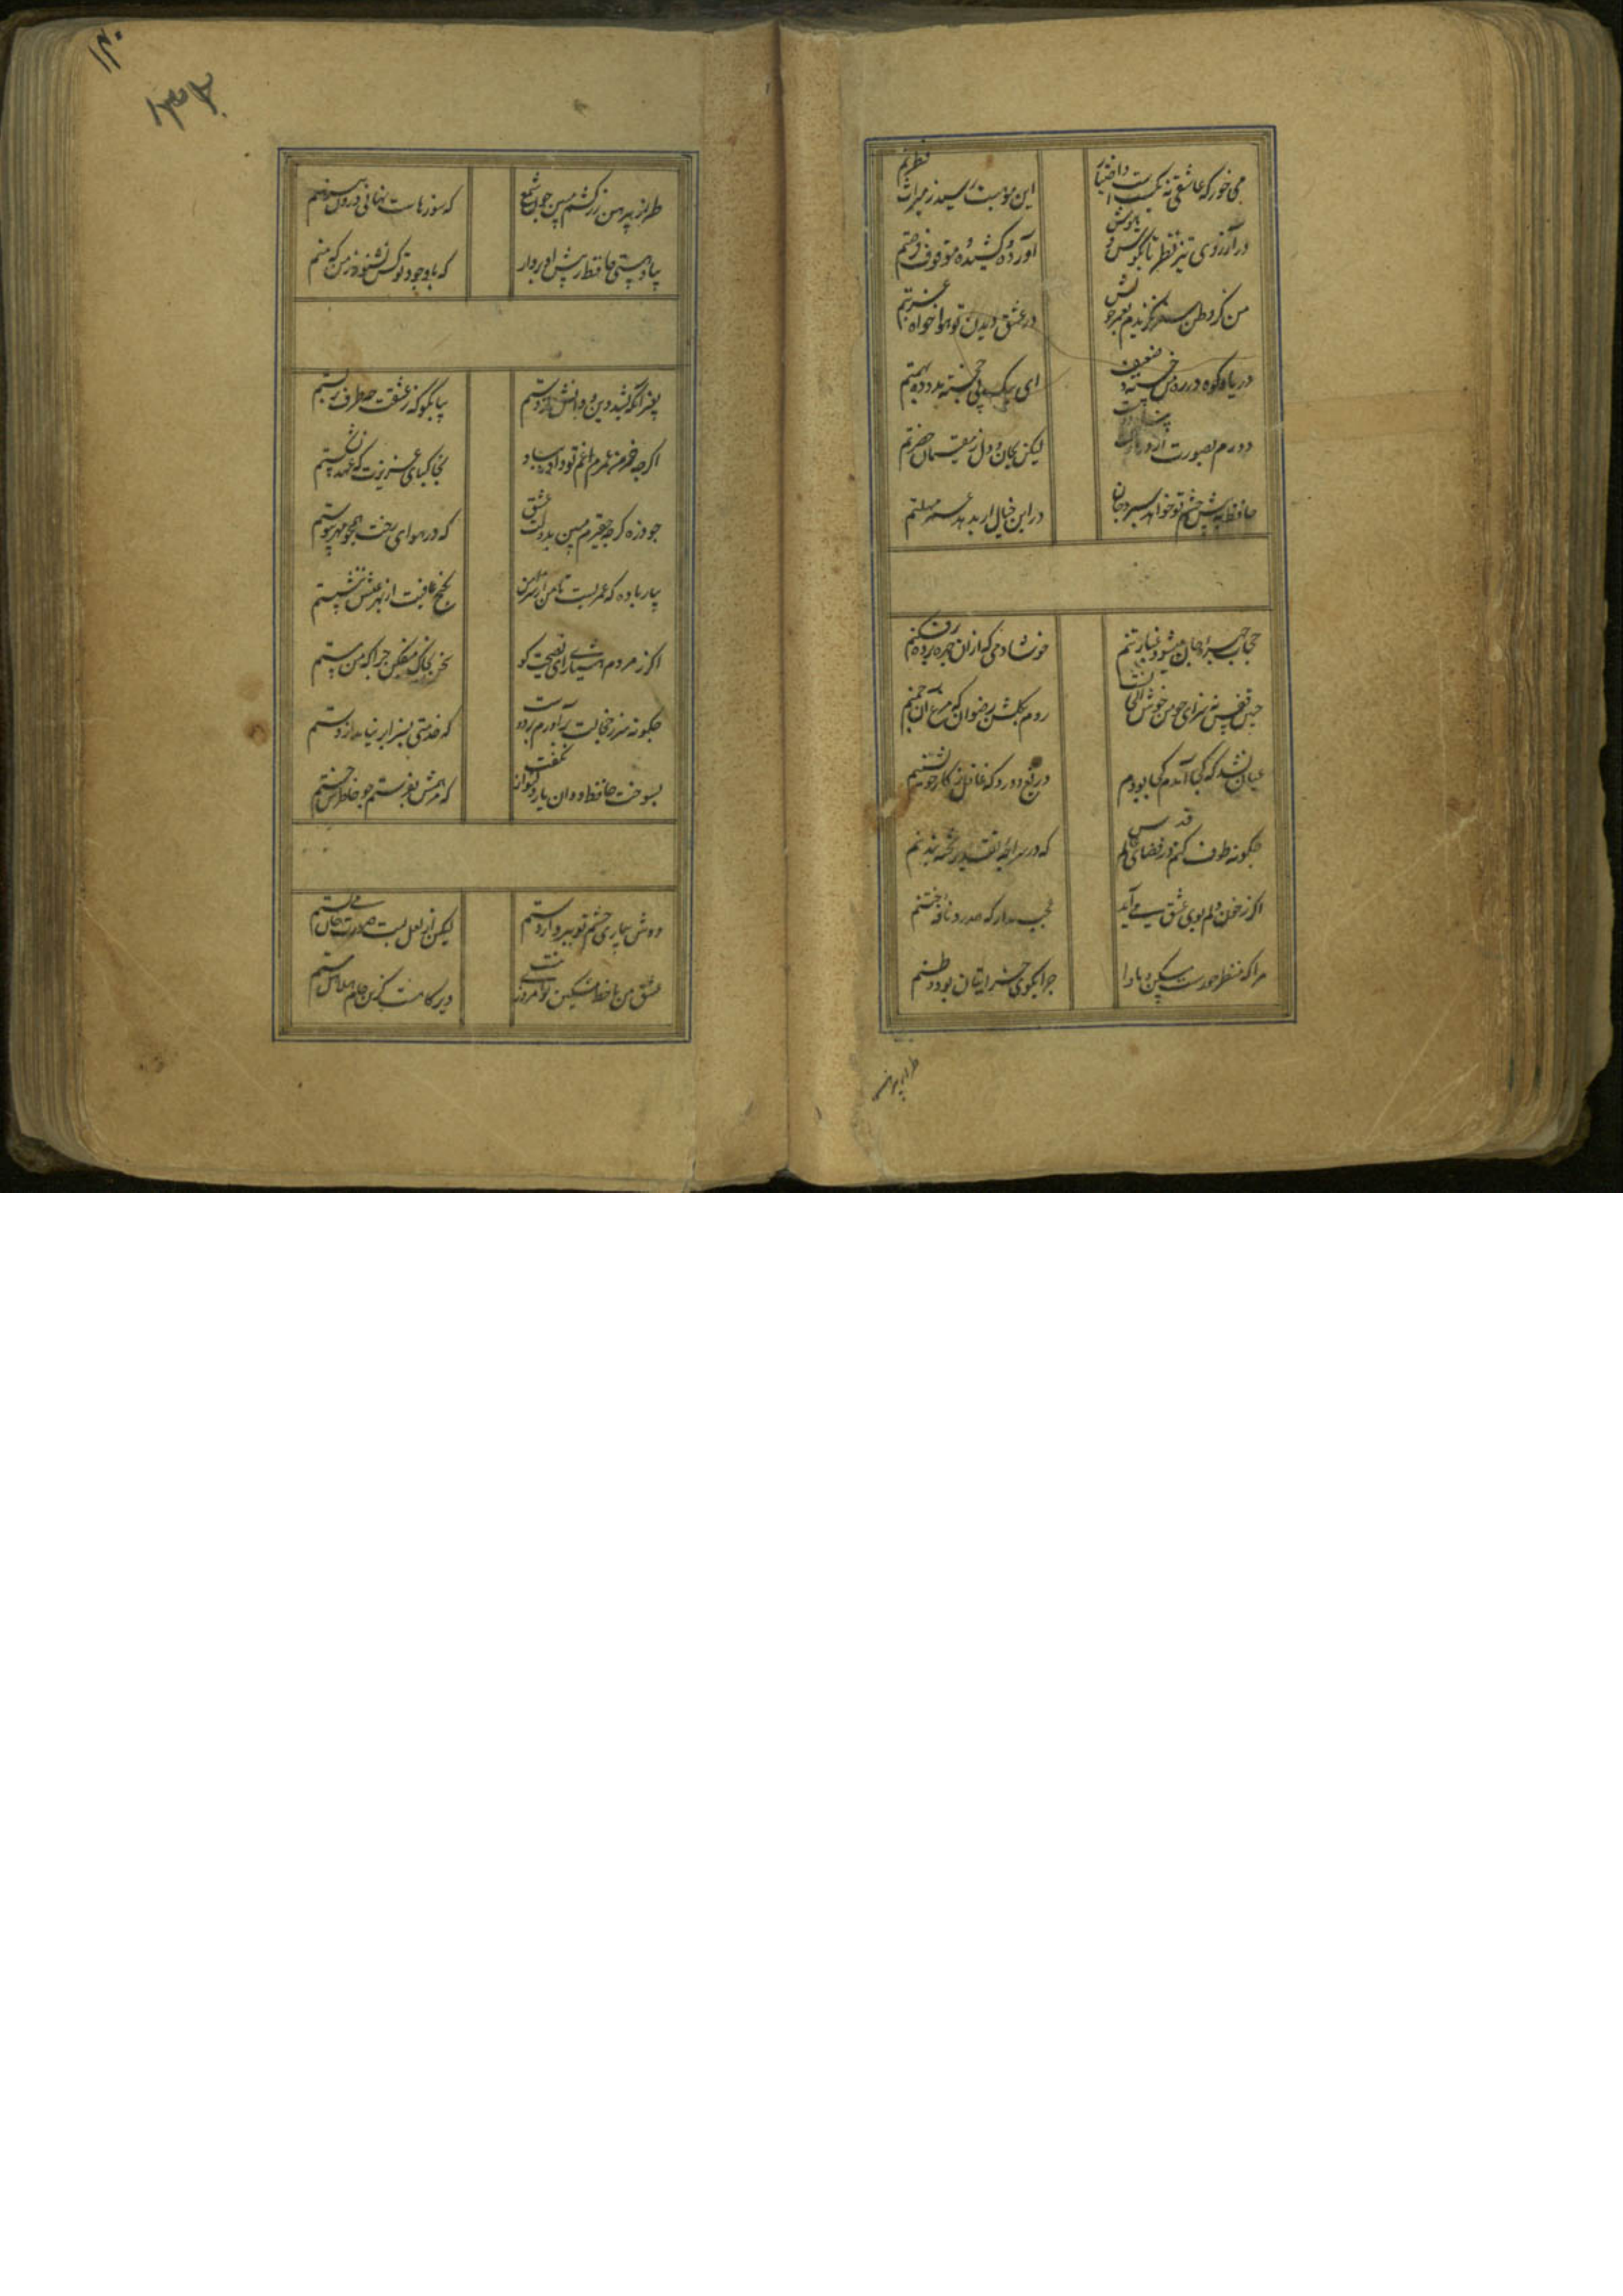 می خور که عاشقی نه بکسبست و اختیار این موهبت رسید ز میراث فطرتم
در آرزوی آورده کشیده موقوف فرصتم
من کز وطن سفر نکزیدم بعمر خویش در عشق دیدن تو هوا خواه غربتم
دریا و کوه در ره و من خسته و ضعیف ای پیک پی خجسته مدد ده بهمتم
دورم بصورت از در لیکن بجان و دل ز مقیمان حضرتم
حافظ به پیش چشم تو خواهد سپرد جان در این خیال ار بدهد عمر مهلتم
حجاب چهره جان میشود غبار تنم خوشا دمی که ازان چهره پرده برفکنم
جنین قفس نه سزای جو من خوش الحانست روم بکلشن رضوان که مرغ آن جمنم
عیان نشد که کجا آمدم کجا بودم دریغ و درد که غافل ز کار خویشتنم
جکونه طوف کنم در فضای عالم قدس که در سراجه تخته بند تنم
اکر ز خون دلم بوی عشق می آید عجب مدار که همدرد نافه ختنم
مرا که منظر حورست مسکن و ماوا جرا بکوی خراباتیان بود وطنم
طراز پیرهن
۱۴۰
طراز پیرهن زرکشم مبین جون شمع که سوزهاست نهانی درون پیرهنم
بیا و هستی حافظ ز پیش او بردار که با وجود تو کس نشنود ز من که منم
بغیر انکه بشد دین و دانش از دستم بیا بکو که ز عشقت جه طرف بربستم
اکرجه خرمن عمرم غم تو داد بباد بخاک پای عزیزت که عهد نشکستم
جو ذره کرجه حقیرم ببین بدولت عشق که در هوای رخت جون بمهر پیوستم
بیار باده که عمریست تا من از سر امن بکنج عافیت از بهر عیش ننشستم
اکر ز مردم هشیاری ای نصیحت کو سخن بخاک میفکن جرا که من مستم
جکونه سر ز خجالت برآورم بر دوست که خدمتی بسزا بر نیامد از دستم
بسوخت حافظ و آن یار دلنواز نکفت که مرهمش بفرستم جو خاطرش خستم
دوش بیماری چشم تو ببرد از دستم لیکن از لعل لبت صورت جان می بستم
عشق من با خط مشکین تو امروزی نیست دیر کاهست کزین جام هلالی مستم